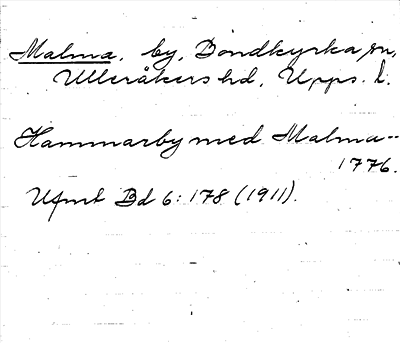 Malma, by, Bondkyrka sn,
Ulleråkers hd, Upps. l.
Hammarby med Malma--
1776.
Ufmt Bd 6: 178 (1911).